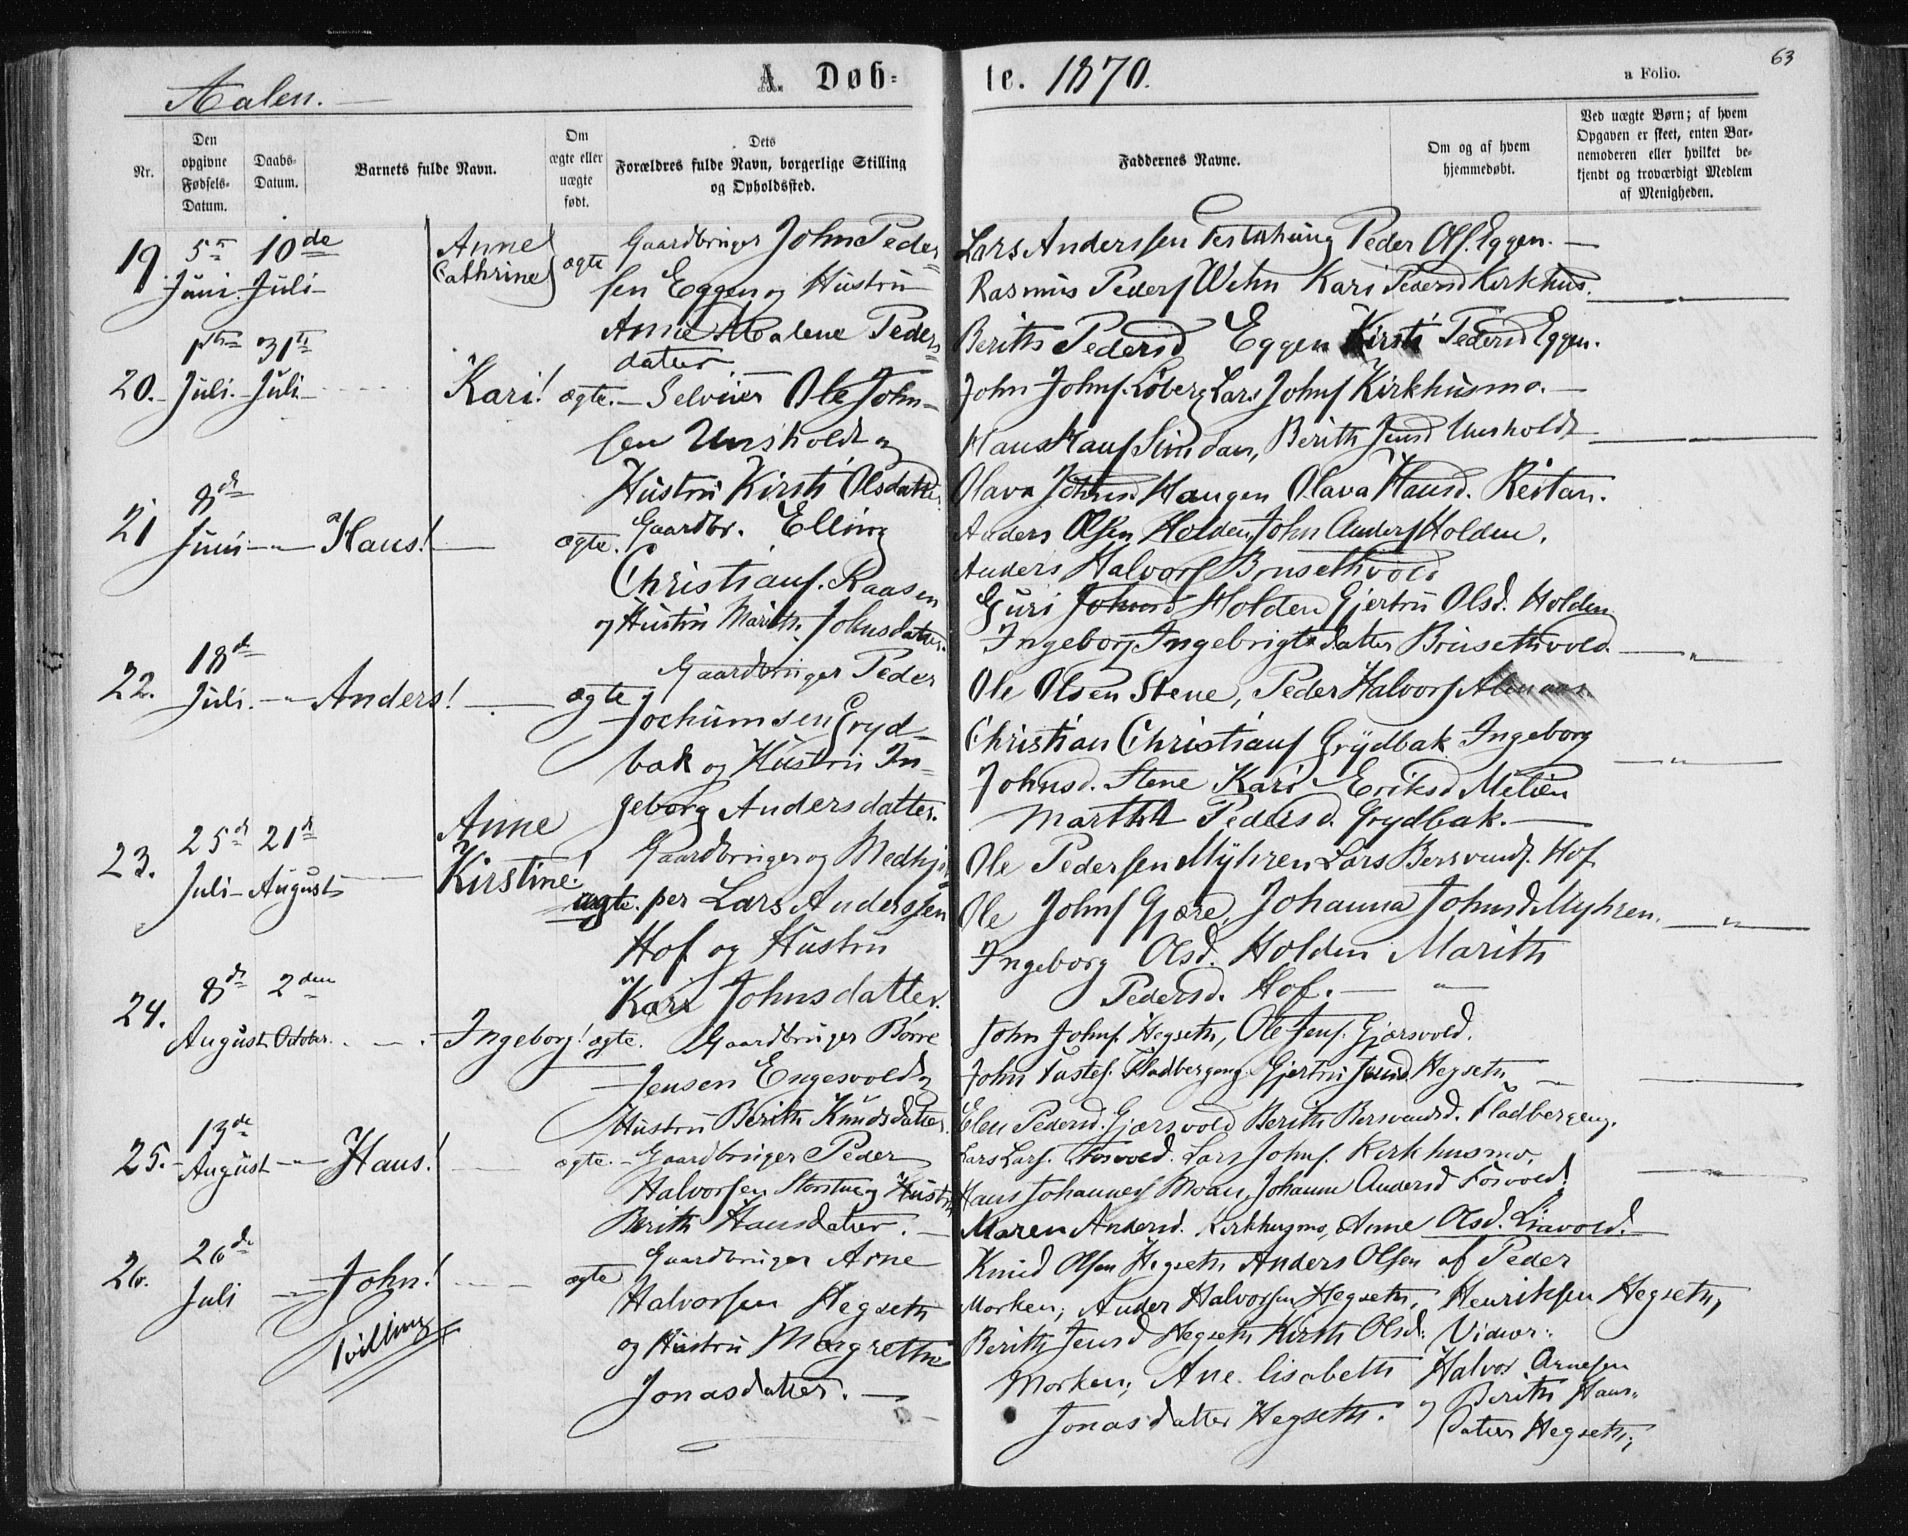 Aalen.
A. Døb=
te. 1870.
a Folio.
63
Nr.
Den opgivne Fødsels-Datum.
Daabs-Datum.
Barnets fulde Navn.
Om ægte eller uægte født.
Dets Forældres fulde Navn, borgerlige Stilling og Opholdssted.
Faddernes Navne.
Om og af hvem hjemmedøbt.
Ved uægte Børn; af hvem Opgaven er skeet, enten Barnemoderen eller hvilket bekjendt og troværdigt Medlem af Menigheden.
19. 5te Juni. 10de Juli
Anne Cathrine
ægte
Gaardbruger John Peder=
sen Eggen og Hustru
Anne Malene Peders
datter
Lars Anderssen Peder Ols. Eggen.
Rasmus Peders Wehn Kari Pedersd Kirkhus.
Berith Pedersd Eggen Kirsti Pedersd Eggen.
20. 1ste Juli. 31te Juli
Kari!
ægte.
Selveier Ole John-
sen Unsholdt og
Hustru Kirsti Olsdatter
John Johns. Løberg Lars Johns Kirkhusmo.
Hans Hans Berith Jensd Unsholdt
Olava Johnsd. Haugen Olava Hansd. Reitan.
21 8de Juni
Hans!
ægte.
Gaardbr. Elling
Christians. Raasen
og Hustru Marith. Johnsdatter.
Anders Olsen Holden, John Anders Holden.
Anders Halvors Brusethvold
Guri Johnsd Holden Gjertru Olsd. Holden
Ingeborg Ingebrigtsdatter Brusethvold.
22. 18de Juli.
Anders!
ægte
Gaardbruger Peder
Jochumsen Gryd-
bak og Hustru In-
geborg Andersdatter.
Ole Olsen Stene, Peder Halvors Almaas.
Christian Christians Grydbak Ingeborg
Johnsd. Stene Kari Eriksd Melien
Martha Pedersd. Grydbak.
23. 25de Juli 21de August
Anne
Kirstine!
ægte.
Gaardbruger og Medhjæl
per Lars Anderssen
Hof og Hustru
Kari Johnsdatter.
Ole Pedersen Myhren Lars Bersvends. Hof
Ole Johns Gjære, Johanna Johnsd Myhren.
Ingeborg Olsd. Holden Marith
Pedersd. Hof.
24. 8de August 2den October.
Ingeborg!
ægte.
Gaardbruger Børre
Jensen Engesvold og
Hustru Berith Knudsdatter.
John Johns Hegseth, Ole Jens. Gjærsvold.
John Tastes. Fladbergeng. Gjertru Jensd Hegseth
Elen Pedersd. Gjærsvold Berith Bersvendsd. Fladbergeng.
25. 13de August
Hans!
ægte.
Gaardbruger Peder
Halvorsen Storstue og Hustru
Berith Hansdatter.
Lars Lars. Fosvold. Lars Johns. Kirkhusmo.
Hans Johannes Moan, Johanne Andersd Fosvold!
Maren Andersd. Kirkhusmo, Anne Olsd. Liavold.
26. 26de Juli
John!
Tvilling
ægte
Gaardbruger Arne
Halvorsen Hegseth
og Hustru Margrethe
Jonasdatter.
Knud Olsen Hegseth Anders Olsen
Morken, Ander Halvorsen Hegseth,
Berith Jensd Hegseth Kirsti Olsd.
Morken, Ane lisabeth
Jonasdatter Hegseth.
af Peder
Henriksen Hegseth,
Halvor Arnesen
og Berith Hans=
datter Hegseth,